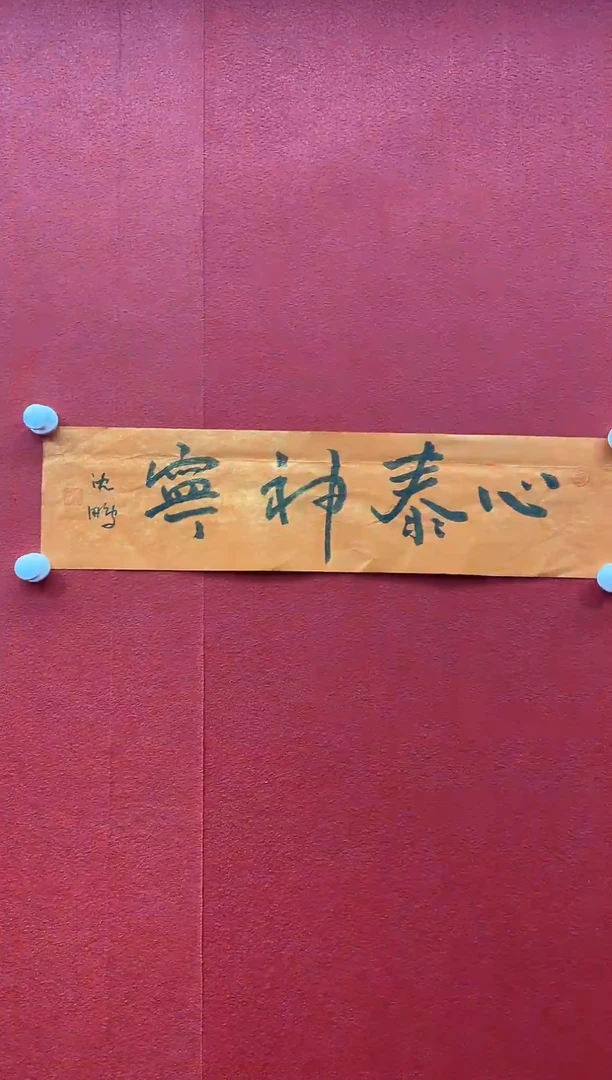 心泰神寧
沈鵬